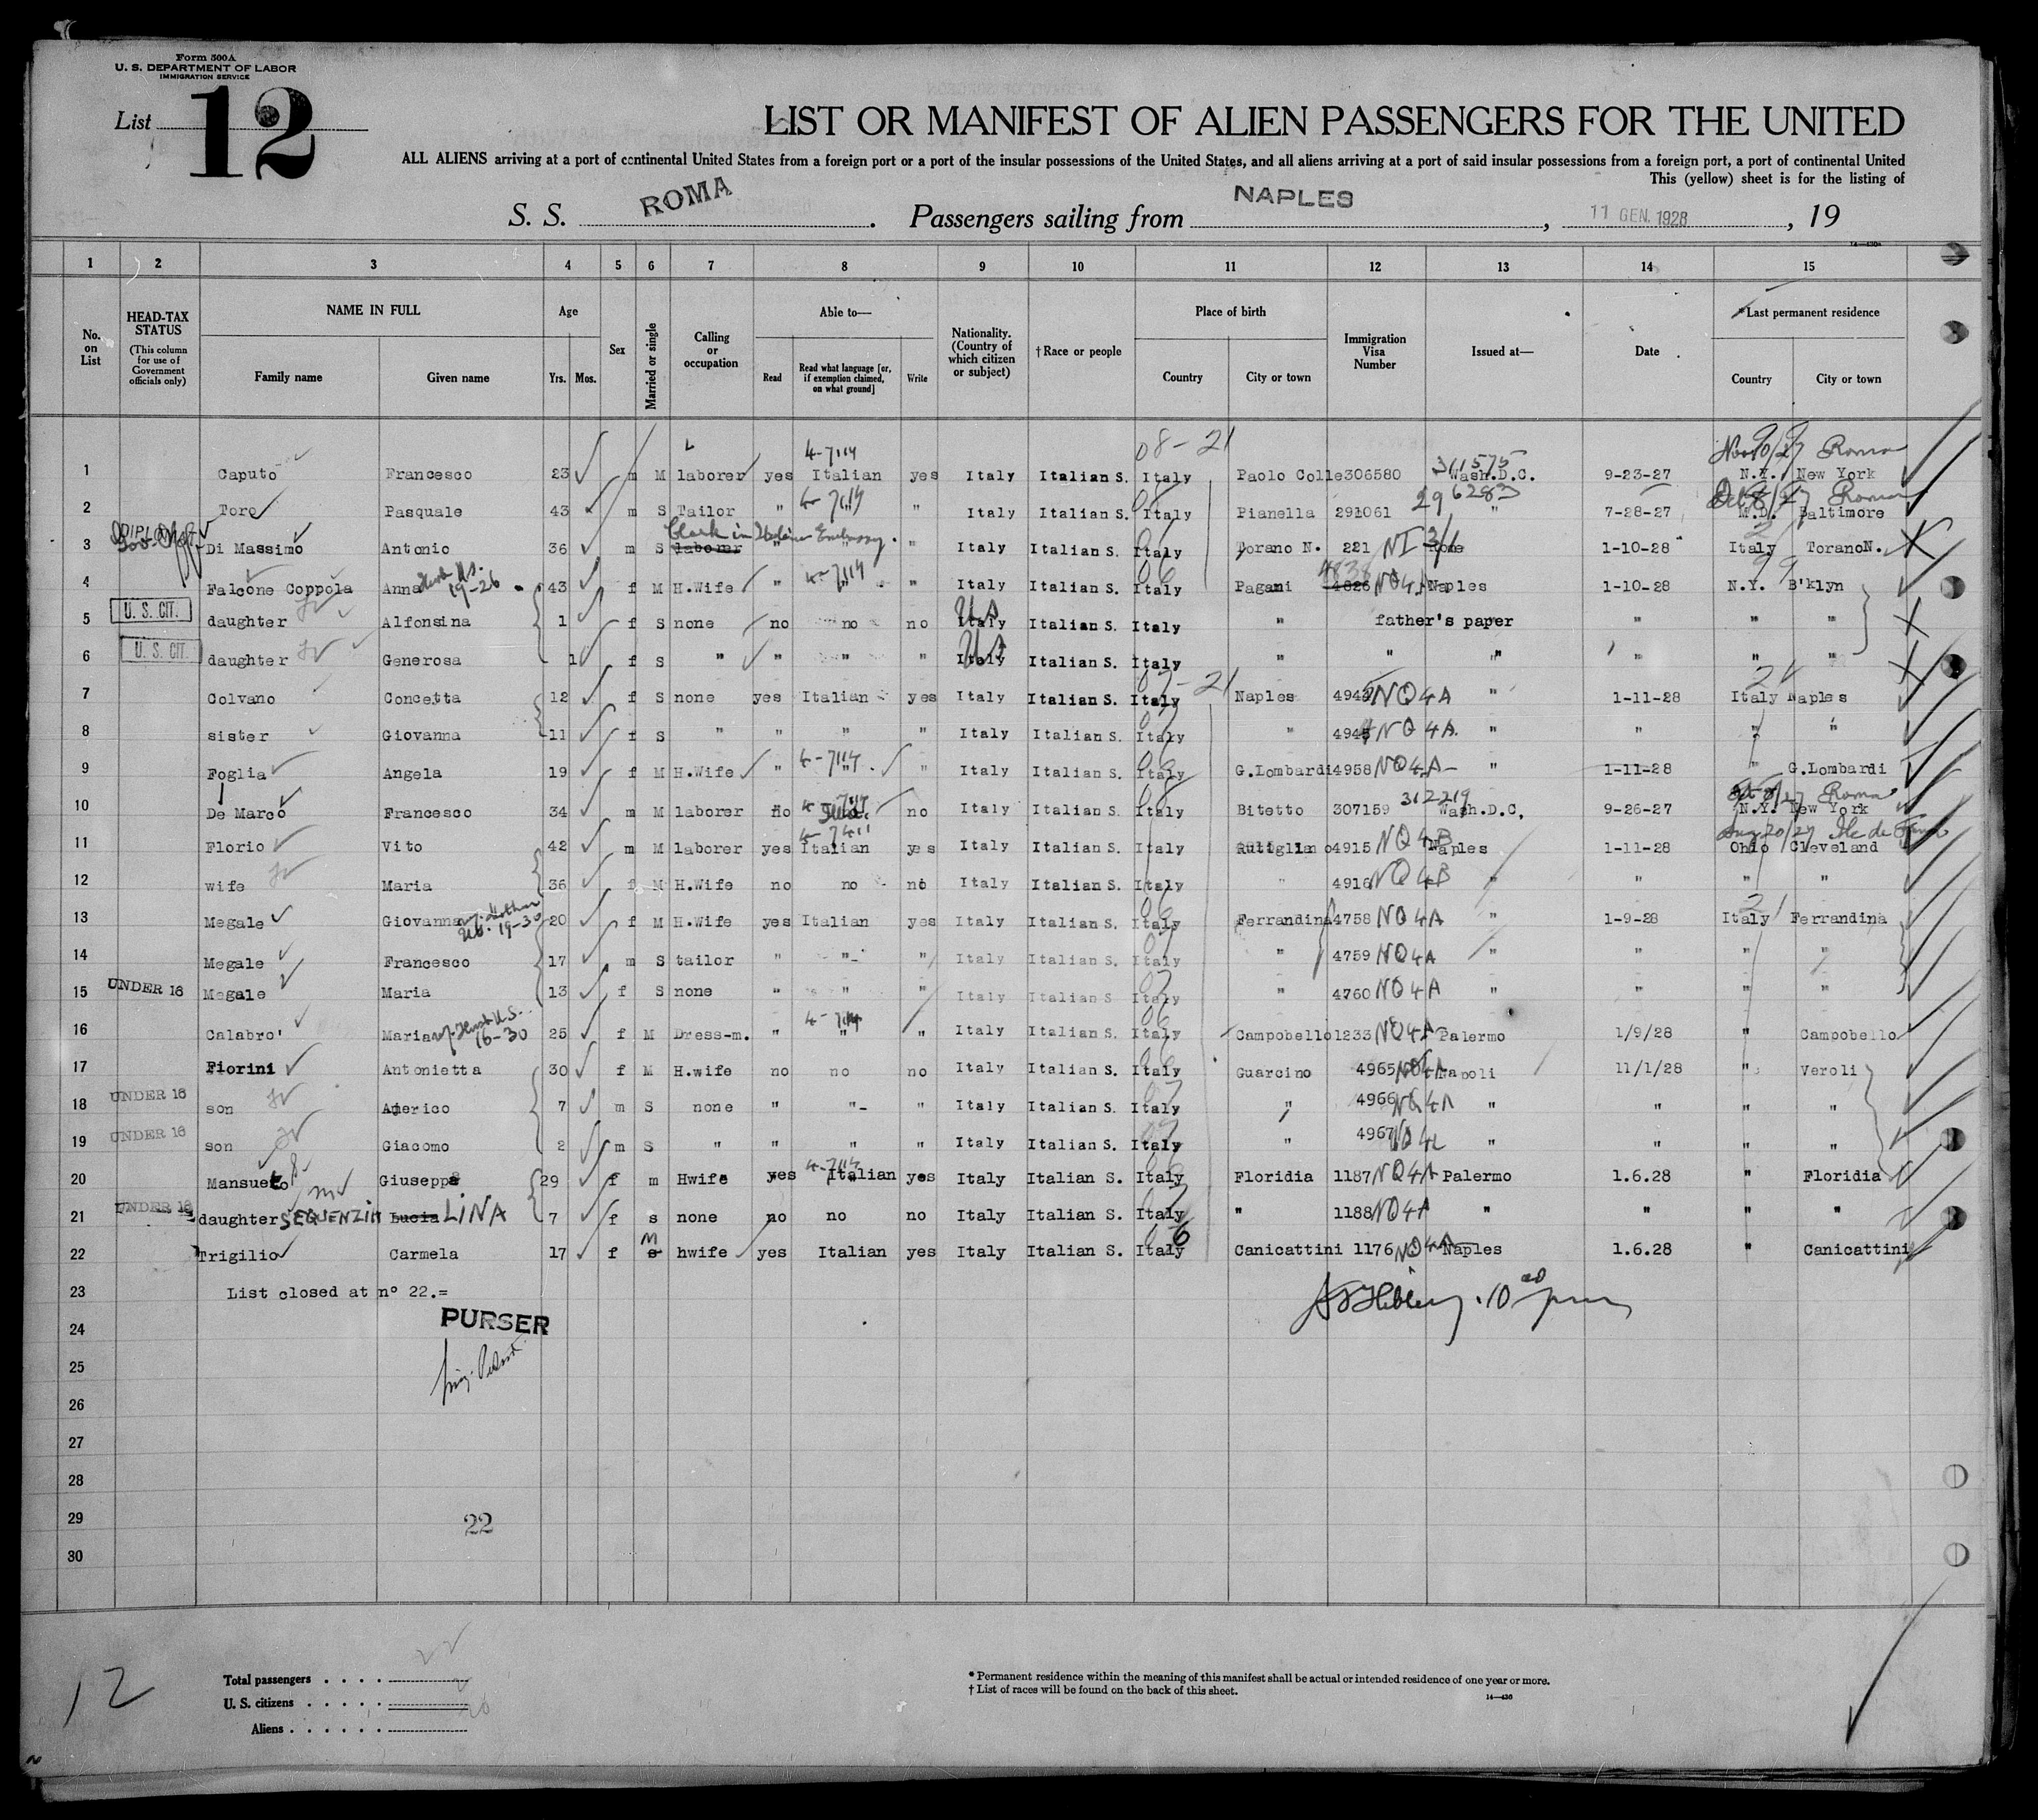 Form 500A
U. S. DEPARTMENT OF LABOR
IMMIGRATION SERVICE
List 12
LIST OR MANIFEST OF ALIEN PASSENGERS FOR THE UNITED
ALL ALIENS arriving at a port of continental United States from a foreign port or a port of the insular possessions of the United States, and all aliens arriving at a port of said insular possessions from a foreign port, a port of continental United
This (yellow) sheet is for the listing of
S. S. ROMA. Passengers sailing from NAPLES, 11 GEN. 1928, 19
1 2 3 4 5 6 7 8 9 10 11 12 13 14 15
No. on List
HEAD-TAX STATUS
(This column for use of Government officials only)
NAME IN FULL
Family name Given name
Age
Yrs. Mos.
Sex
Married or single
Calling or occupation
Able to—
Read
Read what language [or, if exemption claimed, on what ground]
Write
Nationality. (Country of which citizen or subject)
†Race or people
Place of birth
Country City or town
Immigration Visa Number
Issued at—
Date
*Last permanent residence
Country City or town
08-21 Nov 10/27 Roma
1 Caputo Francesco 23 m M laborer yes 4-7114 Italian yes Italy Italian S. Italy Paolo Colle 306580 311575 Wash.D.C. 9-23-27 N.Y. New York
2 Toro Pasquale 43 m S Tailor " 4-7114 " " Italy Italian S. Italy Pianella 291061 296283 " 7-28-27 Oct 8/27 Roma M.D. Baltimore
3 DIPLOMAT Di Massimo Antonio 36 m S laborer Clerk in Italian Embassy. " " " Italy Italian S. Italy Torano N. 221 NI 3/1 Rome 1-10-28 Italy Torano N.
4 Falcone Coppola Anna 19-26 43 f M H.Wife " 4-7114 " " Italy Italian S. Italy Pagani 4826 4838 NQ4A Naples 1-10-28 N.Y. B'klyn
5 U. S. CIT. daughter Alfonsina 1 f S none no no no Italy US Italian S. Italy " father's paper " " "
6 U. S. CIT. daughter Generosa 1 f S " " " " Italy US Italian S. Italy " " " " " "
7 Colvano Concetta 12 f S none yes Italian yes Italy Italian S. Italy Naples NQ4A " 1-11-28 Italy Naples
8 sister Giovanna 11 f S " " " " Italy Italian S. Italy " NQ4A. " " " "
9 Foglia Angela 19 f M H.Wife " 4-7114 " " Italy Italian S. Italy G.Lombardi 4958 NQ4A- " 1-11-28 " G.Lombardi
10 De Marco Francesco 34 m M laborer no no Italy Italian S. Italy Bitetto 307159 312219 Wash.D.C. 9-26-27 Roma N.Y. New York
11 Florio Vito 42 m M laborer yes 4-7411 Italian yes Italy Italian S. Italy Rutigliano 4915 NQ4B Naples 1-11-28 Aug 20/27 Ile de France Ohio Cleveland
12 wife Maria 36 f M H.Wife no no no Italy Italian S. Italy " 4916 NQ4B " " " "
13 Megale Giovanna 19-30 20 f M H.Wife yes Italian yes Italy Italian S. Italy Ferrandina 4758 NQ4A " 1-9-28 Italy Ferrandina
14 Megale Francesco 17 m S tailor " " " Italy Italian S. Italy " 4759 NQ4A " " " "
15 UNDER 16 Megale Maria 13 f S none " " " Italy Italian S. Italy " 4760 NQ4A " " " "
16 Calabro' Maria 16-30 25 f M Dress-m. " 4-7114 " " Italy Italian S. Italy Campobello 1233 NQ4A Palermo 1/9/28 " Campobello
17 Fiorini Antonietta 30 f M H.wife no no no Italy Italian S. Italy Guarcino 4965 NQ4A Napoli 11/1/28 " Veroli
18 UNDER 16 son Americo 7 m S none " " " Italy Italian S. Italy " 4966 NQ4A " " " "
19 UNDER 16 son Giacomo 2 m S " " " " Italy Italian S. Italy " 4967 NQ4A " " " "
20 Mansueto Giuseppa 29 f m Hwife yes 4-7114 Italian yes Italy Italian S. Italy Floridia 1187 NQ4A Palermo 1.6.28 " Floridia
21 UNDER 16 daughter SEQUENZIA Lucia LINA 7 f s none no no no Italy Italian S. Italy " 1188 NQ4A " " " "
22 Trigilio Carmela 17 f s M hwife yes Italian yes Italy Italian S. Italy Canicattini 1176 NQ4A Naples 1.6.28 " Canicattini
23 List closed at n° 22.=
24 PURSER
25
26
27
28
29 22
30
12
Total passengers . . . . 22
U. S. citizens . . . . . 2
Aliens . . . . . . 20
* Permanent residence within the meaning of this manifest shall be actual or intended residence of one year or more.
† List of races will be found on the back of this sheet.
14—430